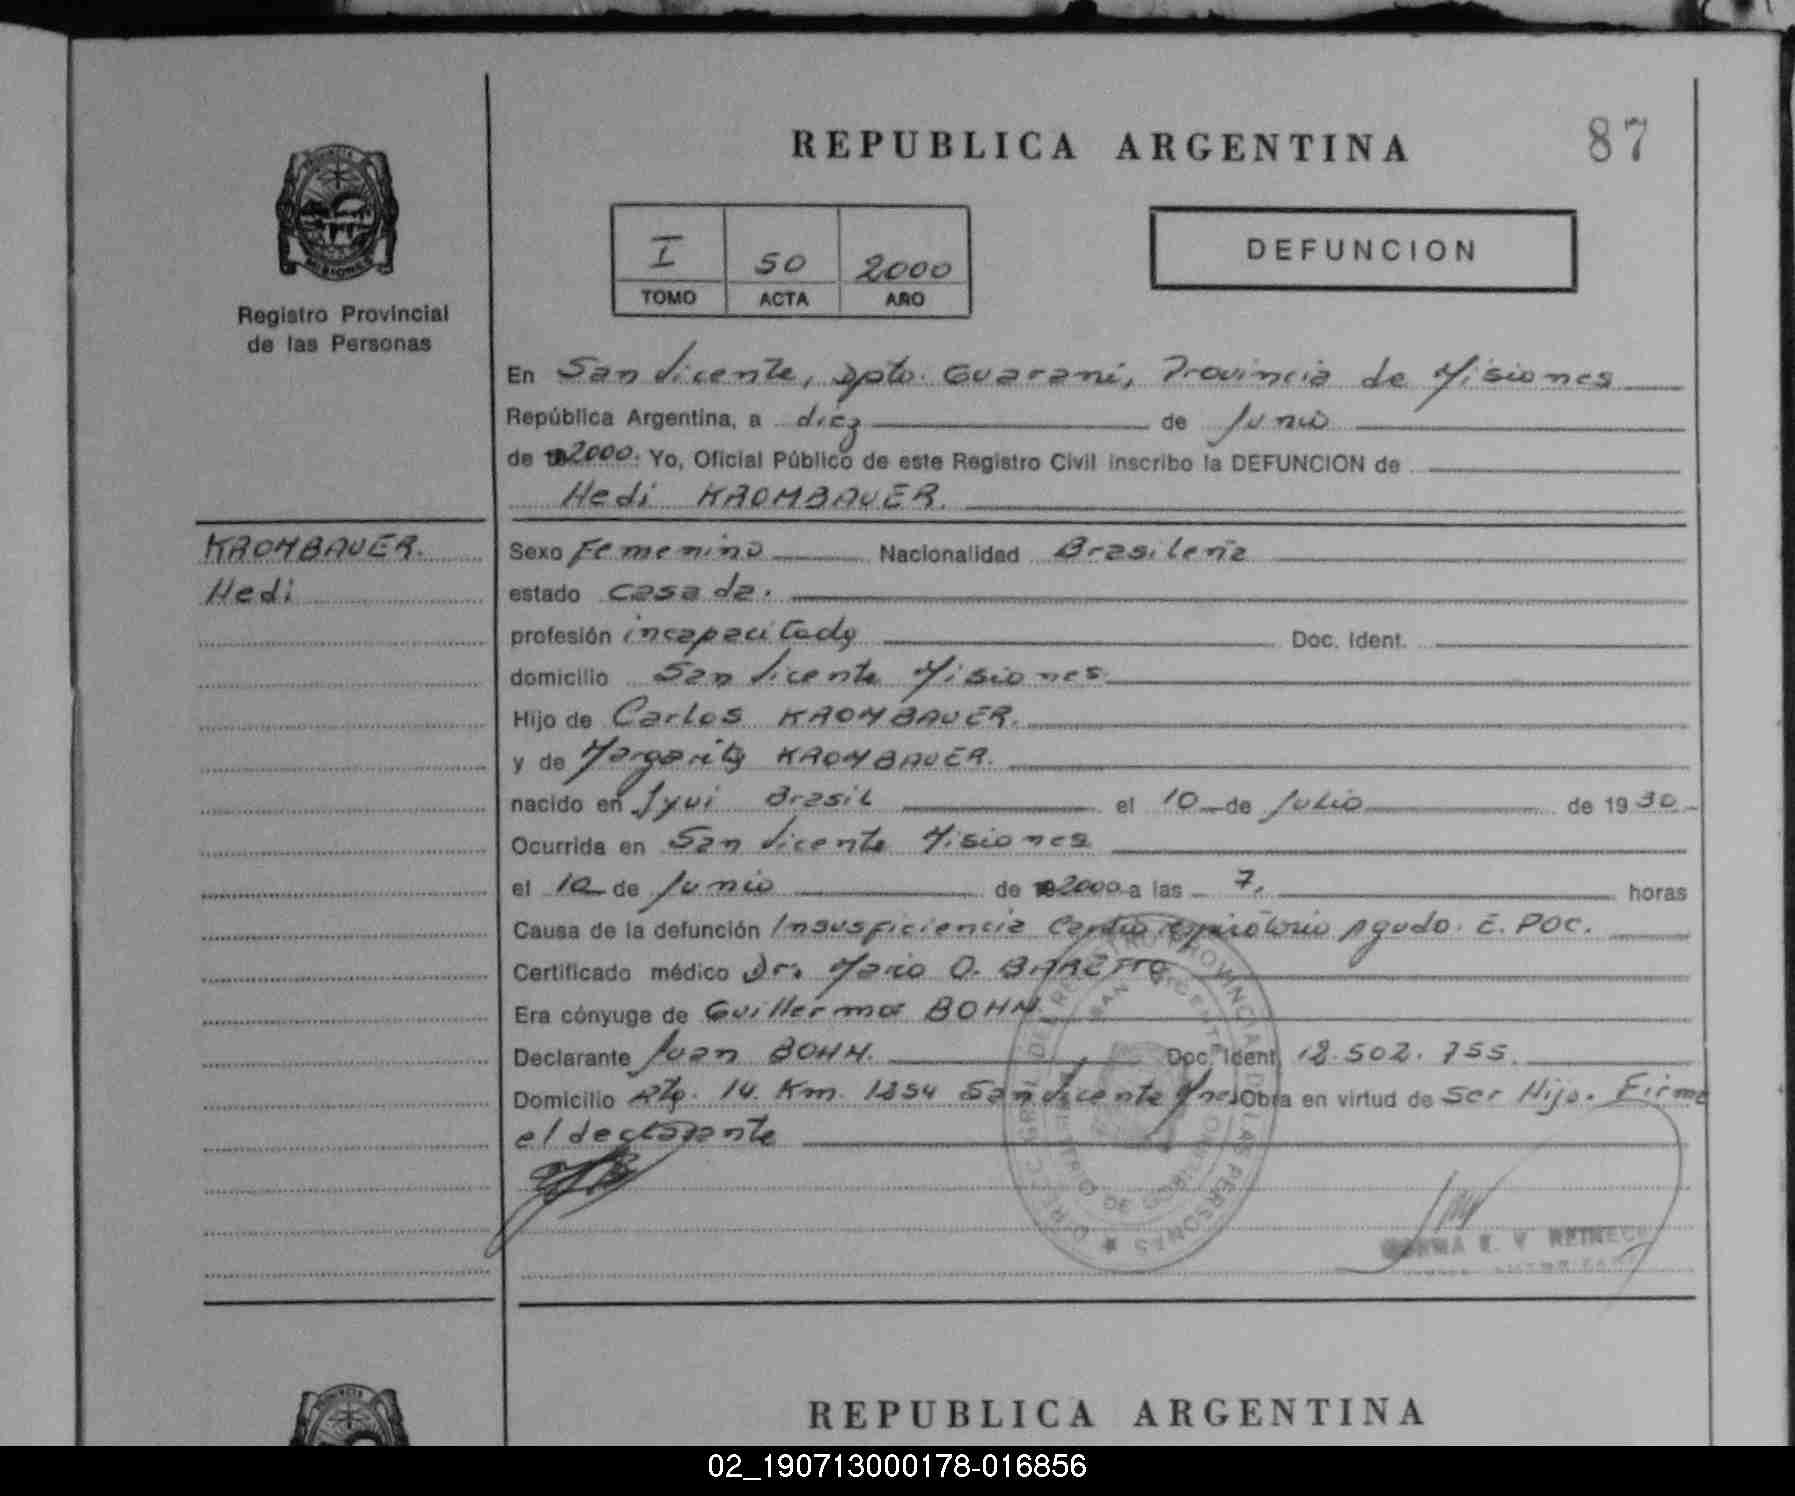 REPUBLICA ARGENTINA
87
PROVINCIA
MISIONES
Registro Provincial
de las Personas
I 50 2000
TOMO ACTA AÑO
DEFUNCION
En San Vicente, Dpto. Guarani, Provincia de Misiones
República Argentina, a diez de Junio
de 2000. Yo, Oficial Público de este Registro Civil inscribo la DEFUNCION de
Hedi KROMBAUER.
KROMBAUER.
Hedi
Sexo Femenino Nacionalidad Brasileña
estado casada.
profesión incapacitada Doc. Ident.
domicilio San Vicente Misiones
Hijo de Carlos KROMBAUER.
y de Margarita KROMBAUER.
nacido en Ijui Brasil el 10 de Julio de 1930
Ocurrida en San Vicente Misiones
el 10 de Junio de 2000 a las 7. horas
Causa de la defunción Insuficiencia Cardio respiratorio Agudo. E.POC.
Certificado médico Dr. Mario O. BARETTO
Era cónyuge de Guillermo BOHN.
Declarante Juan BOHN. Doc. Ident. 12.502.755.
Domicilio Rta. 14. Km. 1254 San Vicente Mnes Obra en virtud de ser Hijo. Firma
el declarante
DIREC. GRL. DEL REGISTRO PROVINCIAL DE LAS PERSONAS
SAN VICENTE
NORMA E. V REINECK
REPUBLICA ARGENTINA
PROVINCIA
02_190713000178-016856